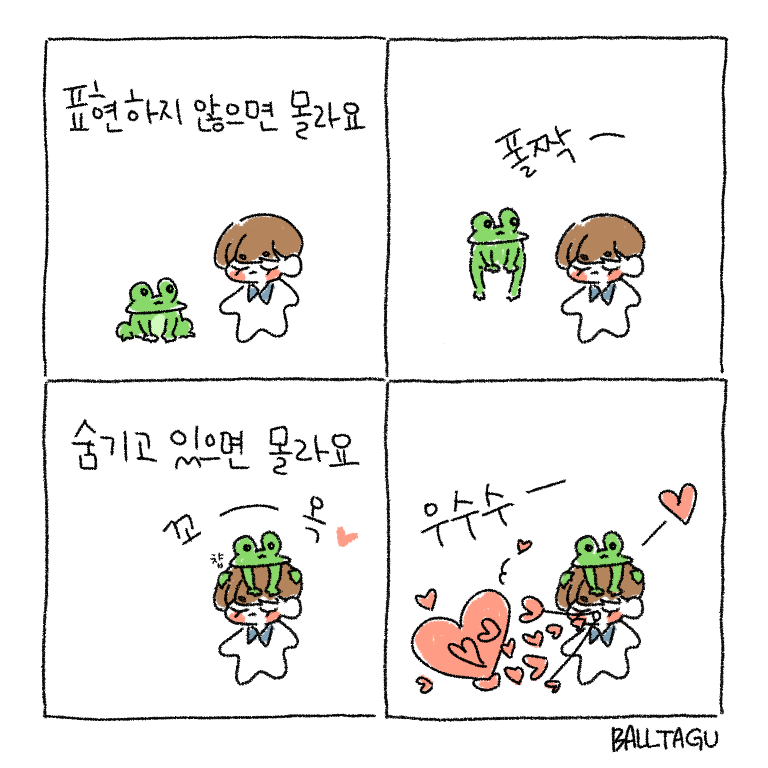 표현하지 않으면 몰라요
폴짝ㅡ
숨기고 있으면 몰라요
꼬ㅡ옥
챱
우수수ㅡ
BALLTAGU